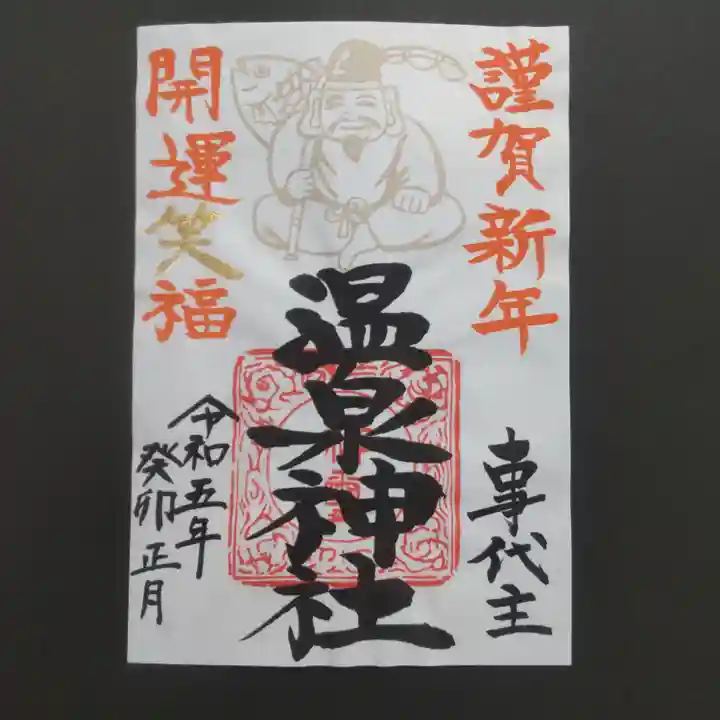 謹賀新年
事代主
温泉神社
開運笑福
令和五年
癸卯正月